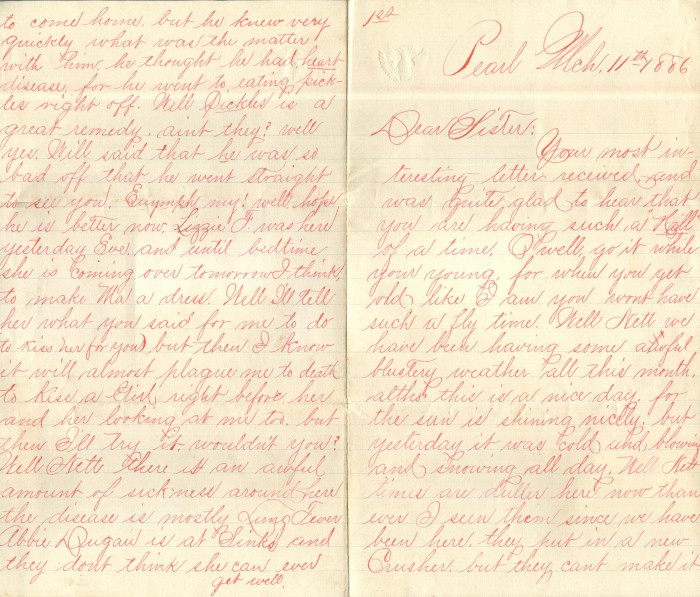 to come home. but he knew very
quickly what was the matter
with him, he thought he had heart
disease, for he went to eating pick-
les right off. Well Pickles is a
great remedy. aint they? well
yes. Will said that he was so
bad off that he went straight
to see you. my! well hope
he is better now. Lizzie T was here
yesterday Eve, and until bedtime
she is Coming over tomorrow I think,
to make Ma a dress. Well Ill tell
her what you said for me to do
to Kiss her (for you) but then I know
it will almost plague me to death
to Kiss a Girl, right before her
and her looking at me too. but
then I'll try it. wouldn't you?
Well Nett There is an awful
amount of sickness around here
the disease is mostly Lung Fever
Abbie Dugan is at Sinks, and
they dont think she can ever
get well.
1st
Pearl Mch. 11th 1886
Dear Sister:
Your most in-
teresting letter received, and
was quite glad to hear that
you are having such, a "Hell
of a time. O well, go it while
your young, for when you get
old like I am you wont have
such a fly time. Well Nett we
have been having some awful
blustery weather all this month.
altho this is a nice day. for
the sun is shining nicely. but
yesterday it was cold and blowing
and snowing all day. Well Nett
times are duller here now than
ever I seen them since we have
been here. they put in a new
Crusher. but they cant make it